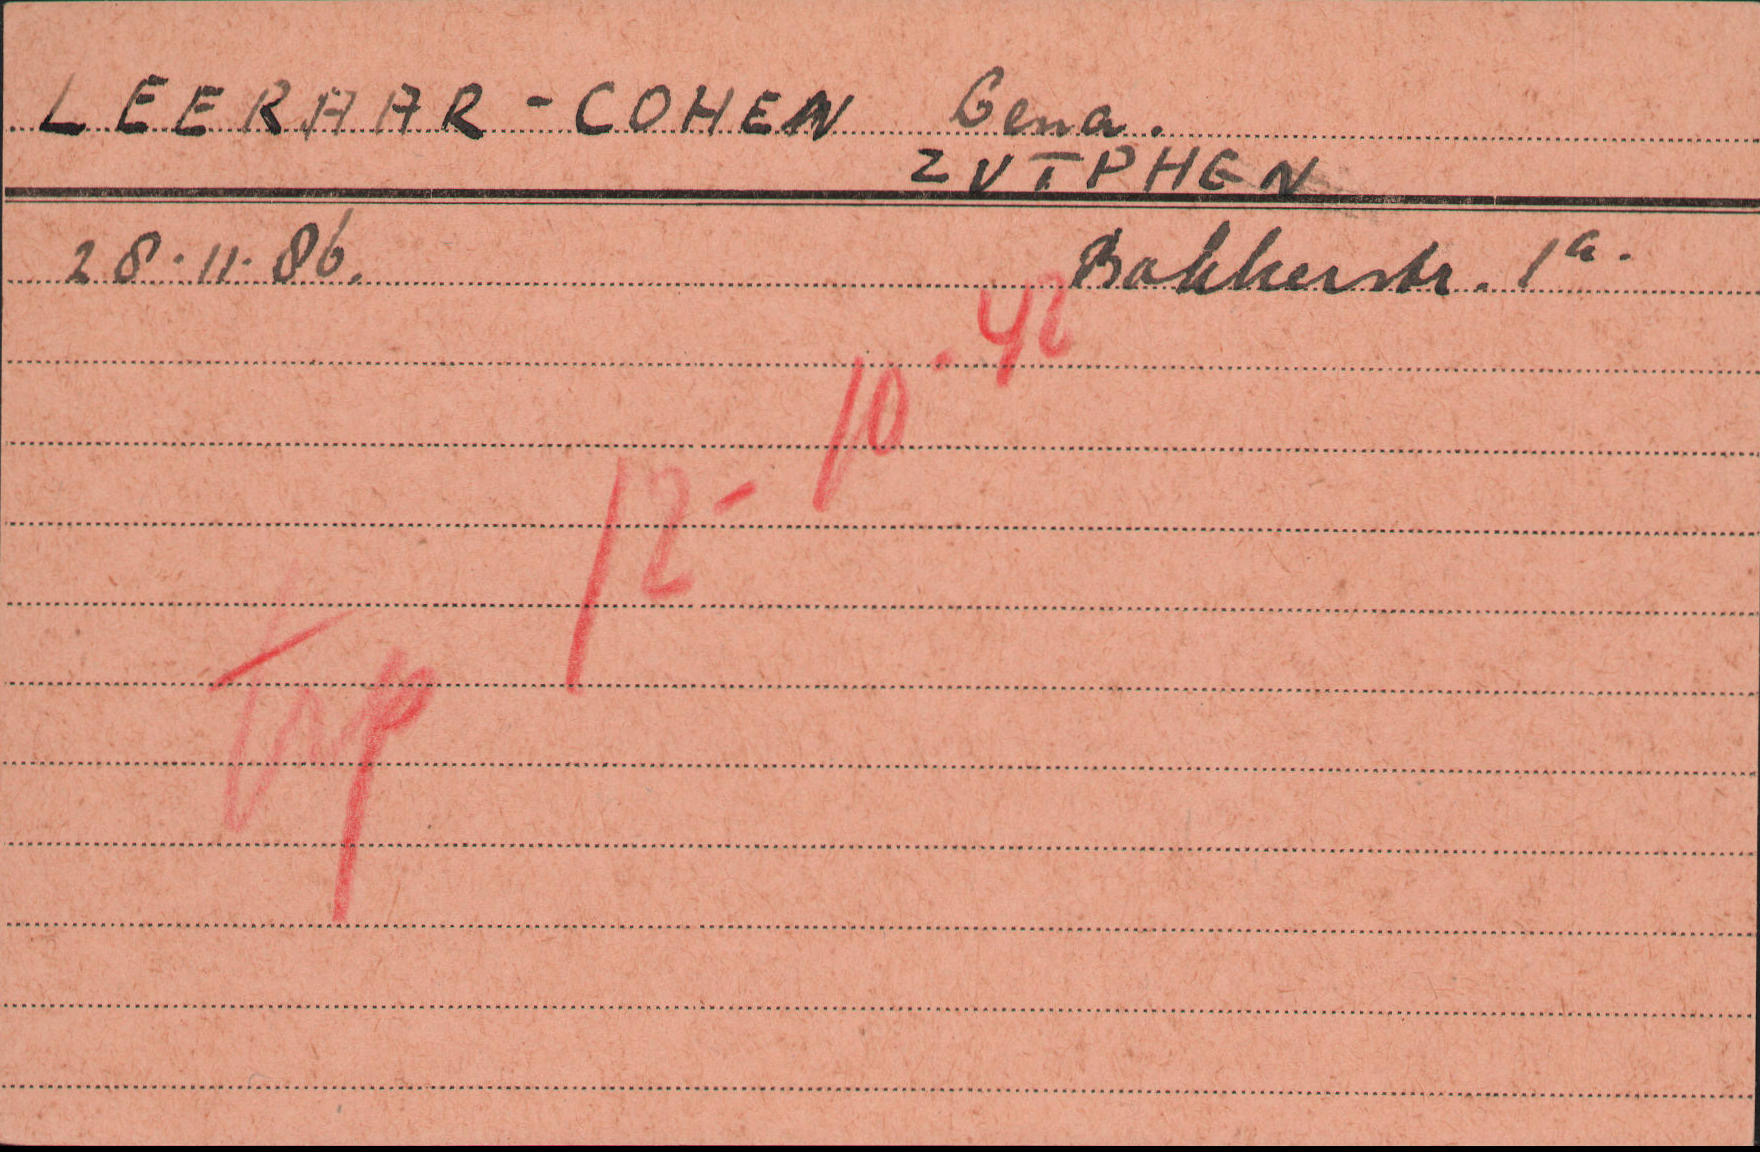 LEERAAR-COHEN Gena.
ZUTPHEN
28.11.86. Bakkerstr. 1a.
Trp 12-10-42